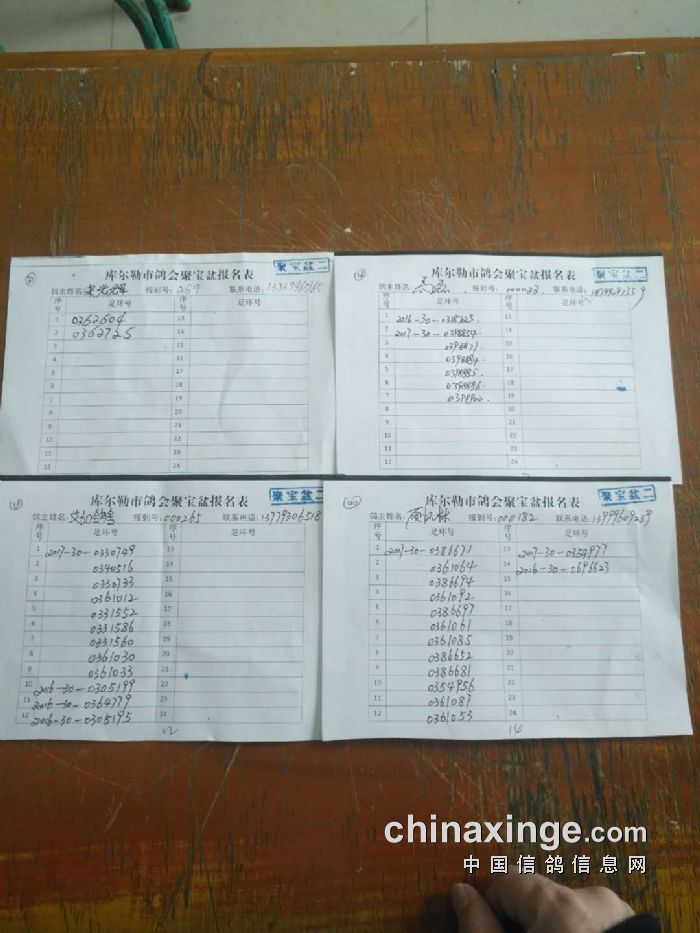 聚宝盆二
库尔勒市鸽会聚宝盆报名表
鸽主姓名: 报到号: 267 联系电话:
序号 足环号 序号 足环号
1 0362604 13
2 0362725 14
3 15
4 16
5 17
6 18
7 19
8 20
9 21
10 22
11 23
12 24
聚宝盆二
库尔勒市鸽会聚宝盆报名表
鸽主姓名: 报到号: 000022 联系电话:
序号 足环号 序号 足环号
1 2016-30-1318225 13
2 2017-30-0398854 14
3 0398877 15
4 0398884 16
5 0398885 17
6 0398896 18
7 0398900 19
8 20
9 21
10 22
11 23
12 24
聚宝盆二
库尔勒市鸽会聚宝盆报名表
鸽主姓名: 报到号: 000265 联系电话: 13779306518
序号 足环号 序号 足环号
1 2017-30-0330749 13
2 0340516 14
3 0330733 15
4 0361012 16
5 0331552 17
6 0331586 18
7 0331560 19
8 0361030 20
9 0361033 21
10 2016-30-0305199 22
11 2016-30-0364779 23
12 2016-30-0305195 24
12
聚宝盆二
库尔勒市鸽会聚宝盆报名表
鸽主姓名: 报到号: 000182 联系电话: 13999609239
序号 足环号 序号 足环号
1 2017-30-0386671 13 2017-30-0354977
2 0361064 14 2016-30-0696623
3 0386694 15
4 0361092 16
5 0386697 17
6 0361061 18
7 0361085 19
8 0386652 20
9 0386681 21
10 0354956 22
11 0361087 23
12 0361053 24
14
chinaxinge.com
中国信鸽信息网